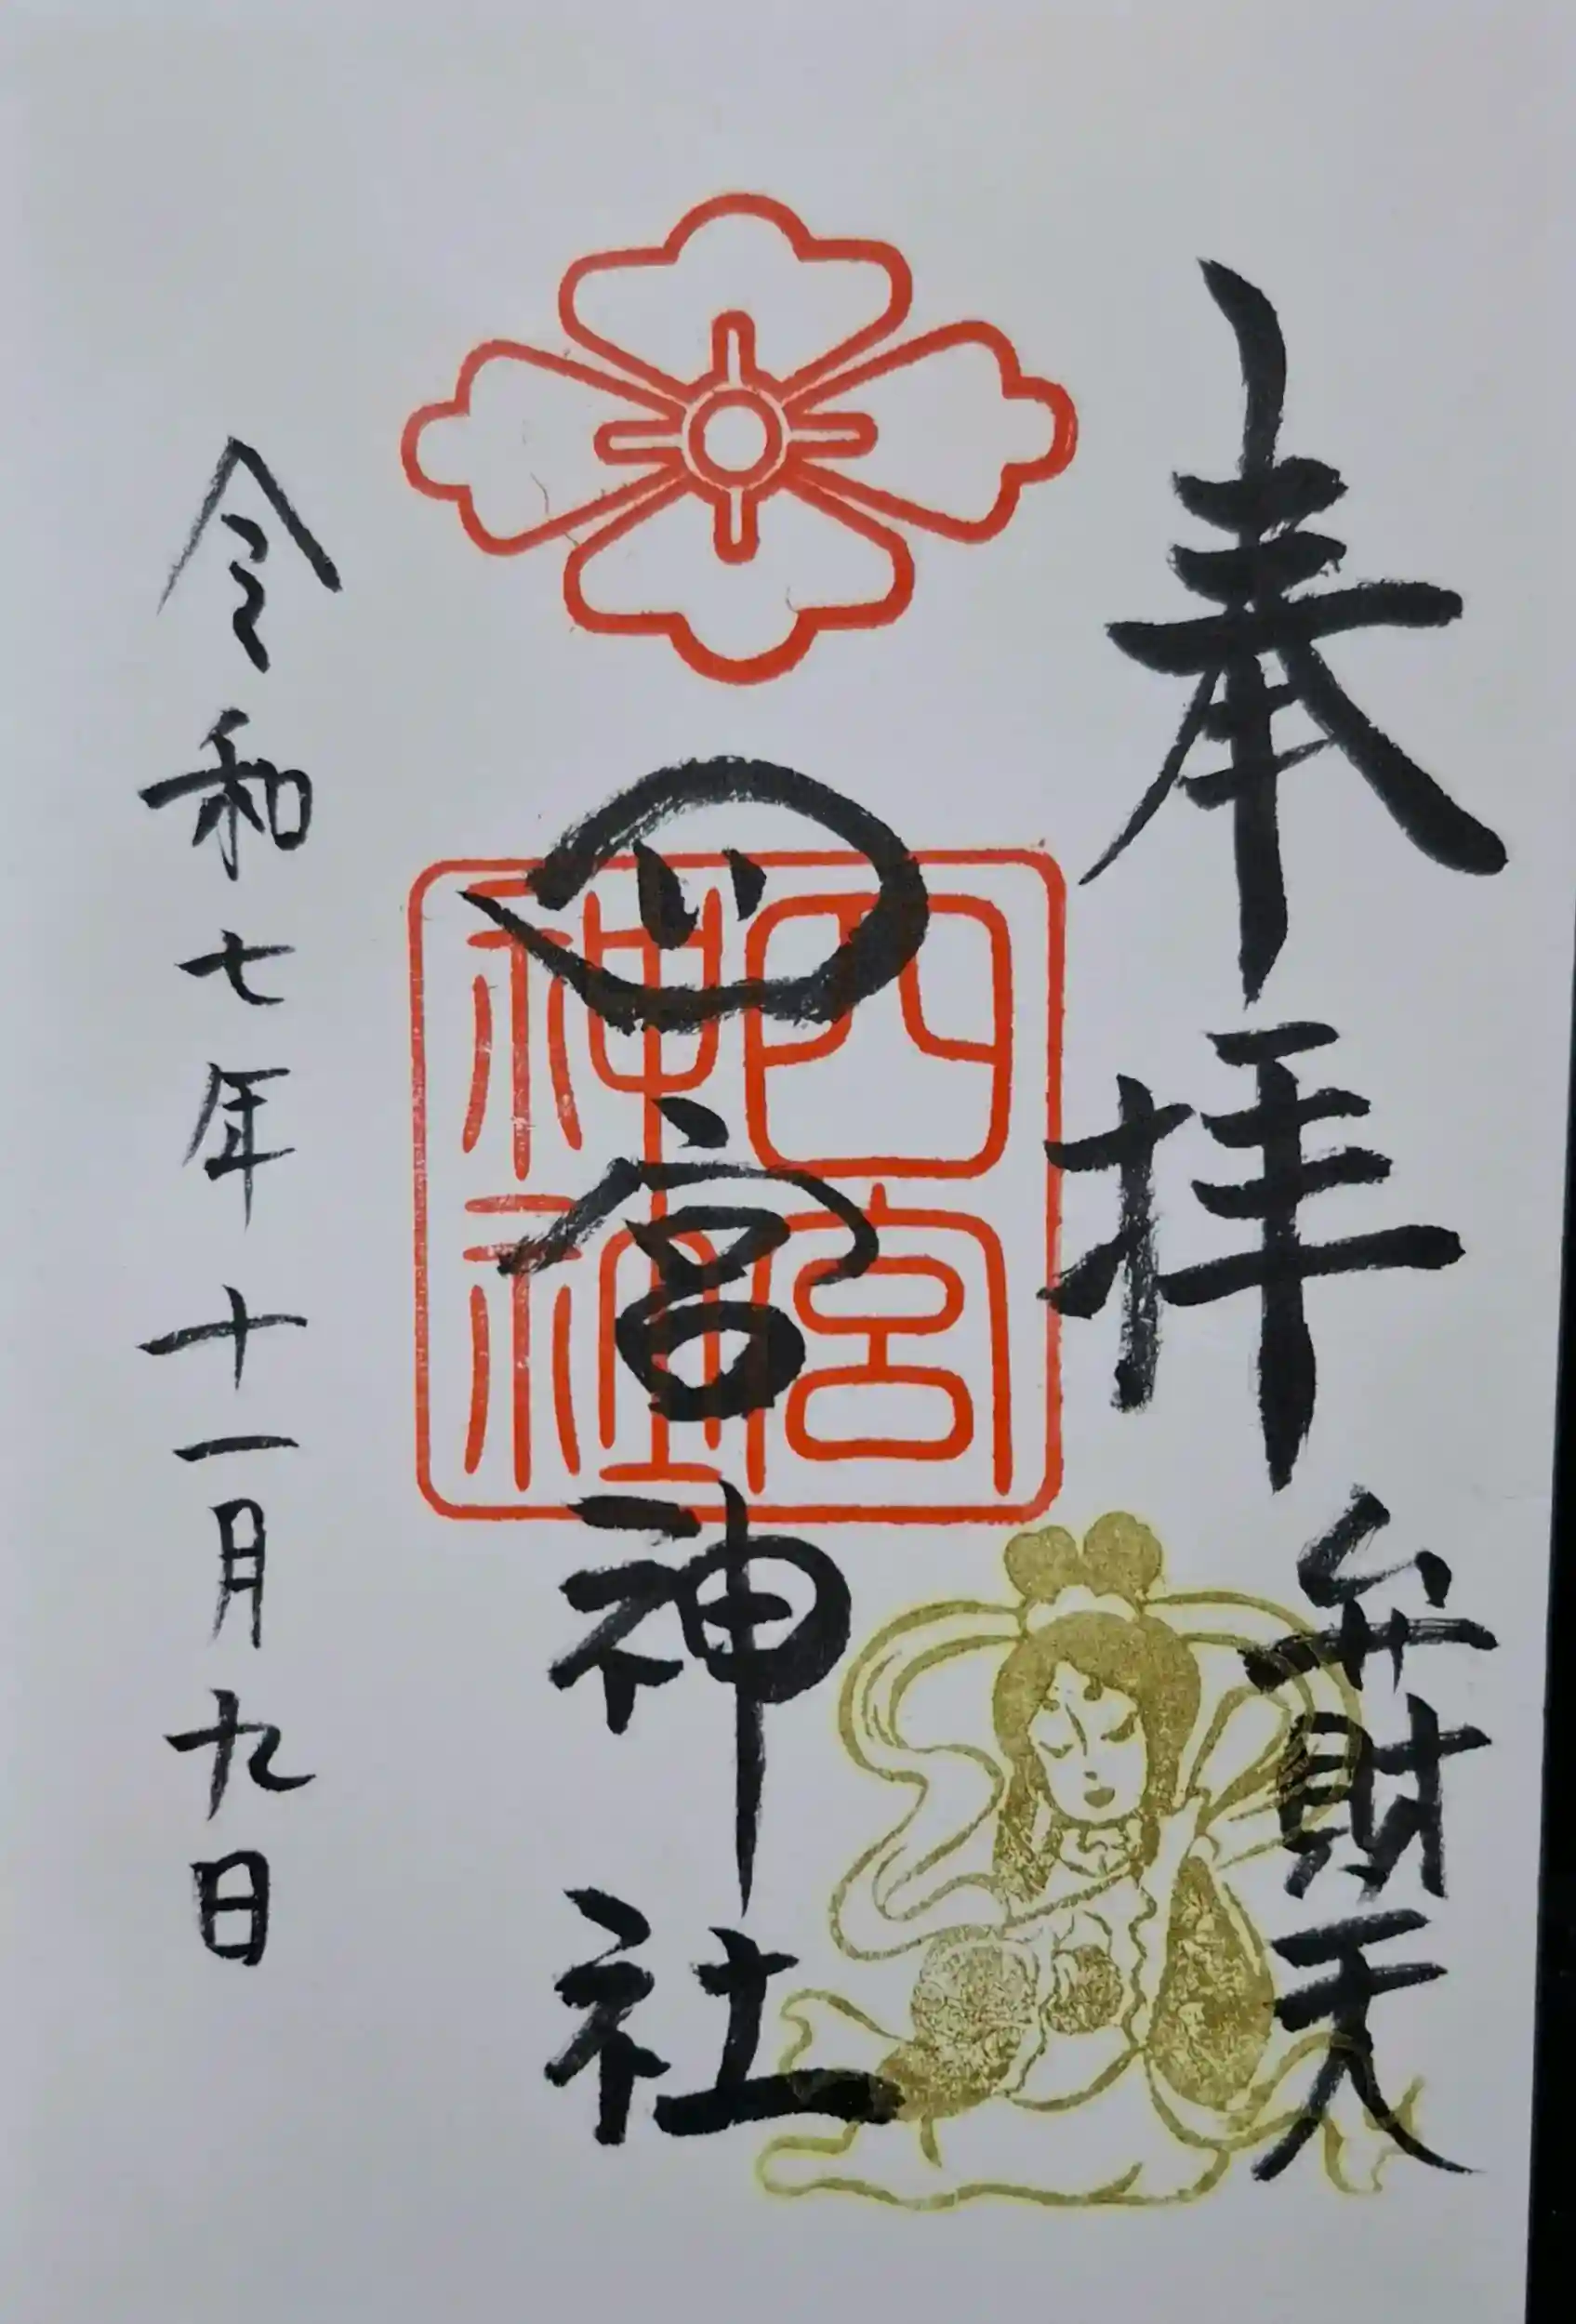 奉拝
弁財天
四宮神社
四宮
神社
令和七年十一月九日